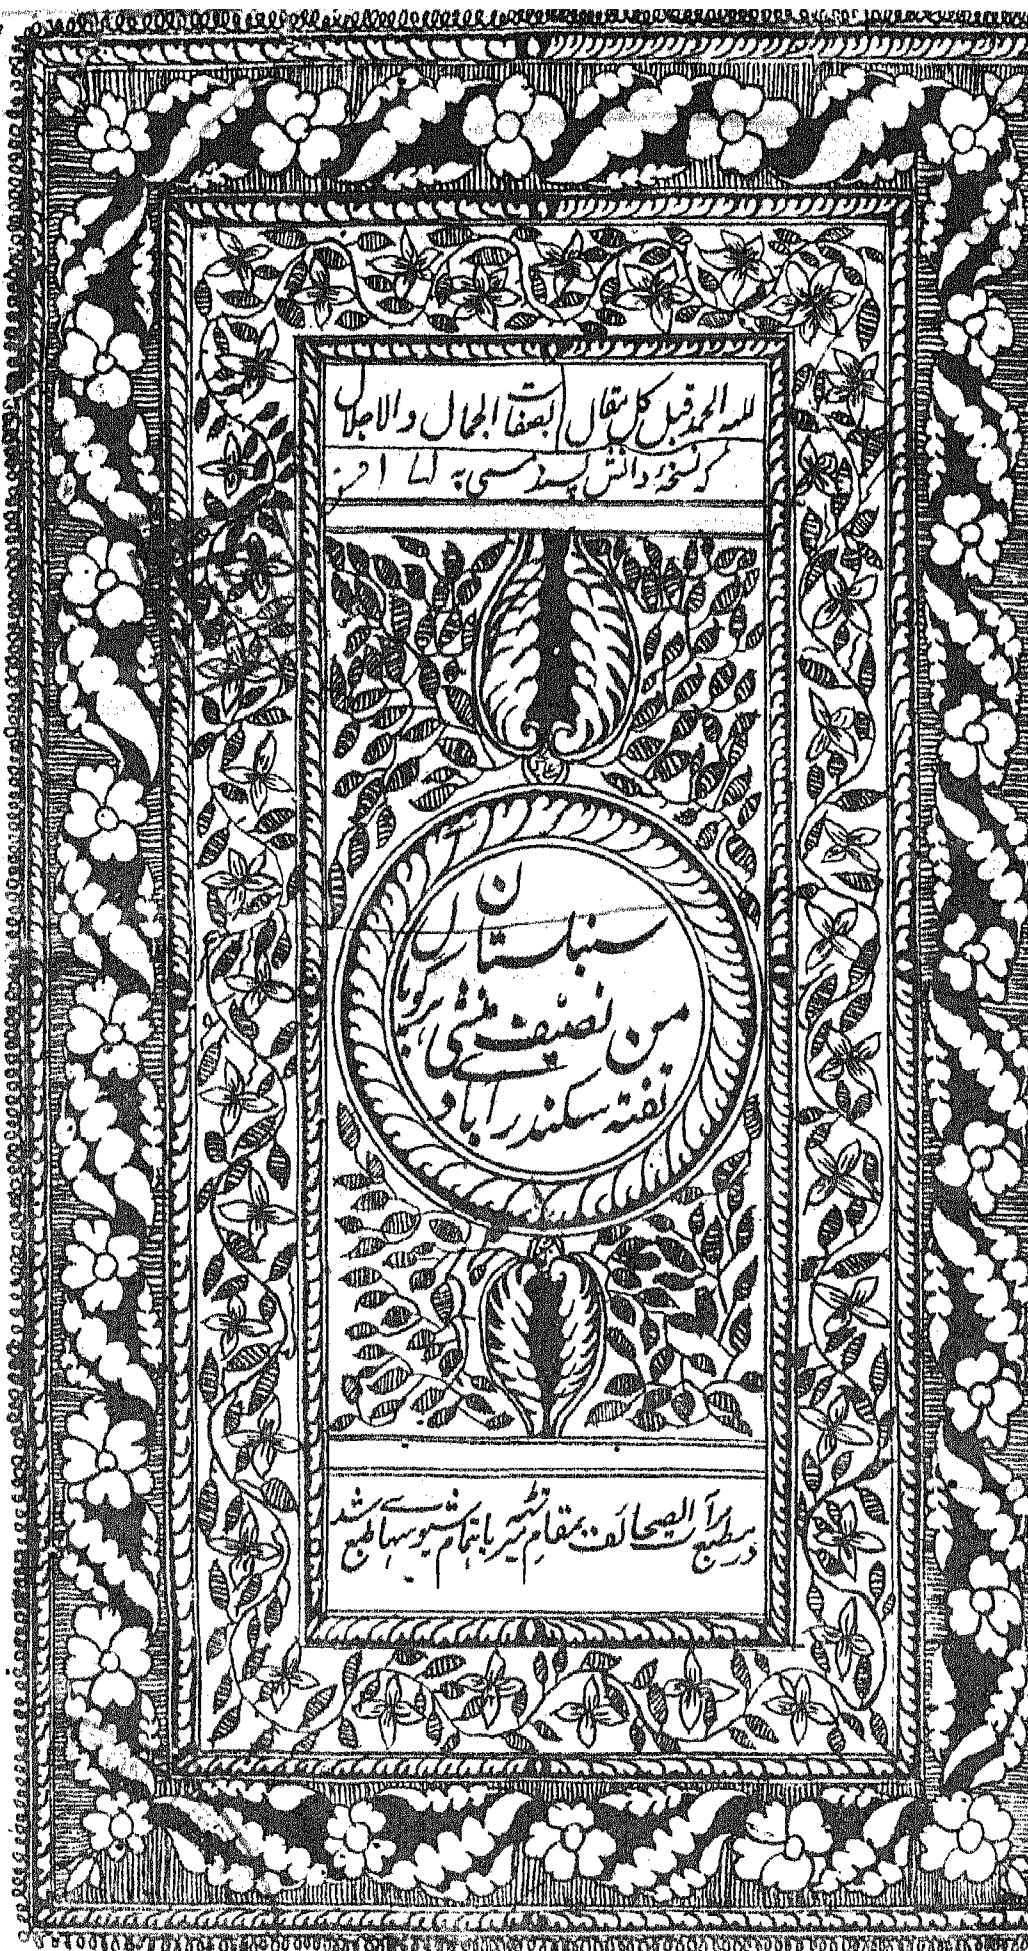 لله الحمد قبل کل مقال بصفات الجمال والاجلال
که نسخه دانش پسند مسمی به
سنبلستان
من تصنیف منشی هرگوپال
تفته سکندرآباد
در مطبع الصحائف بمقام میرٹھ باہتمام طبع شد